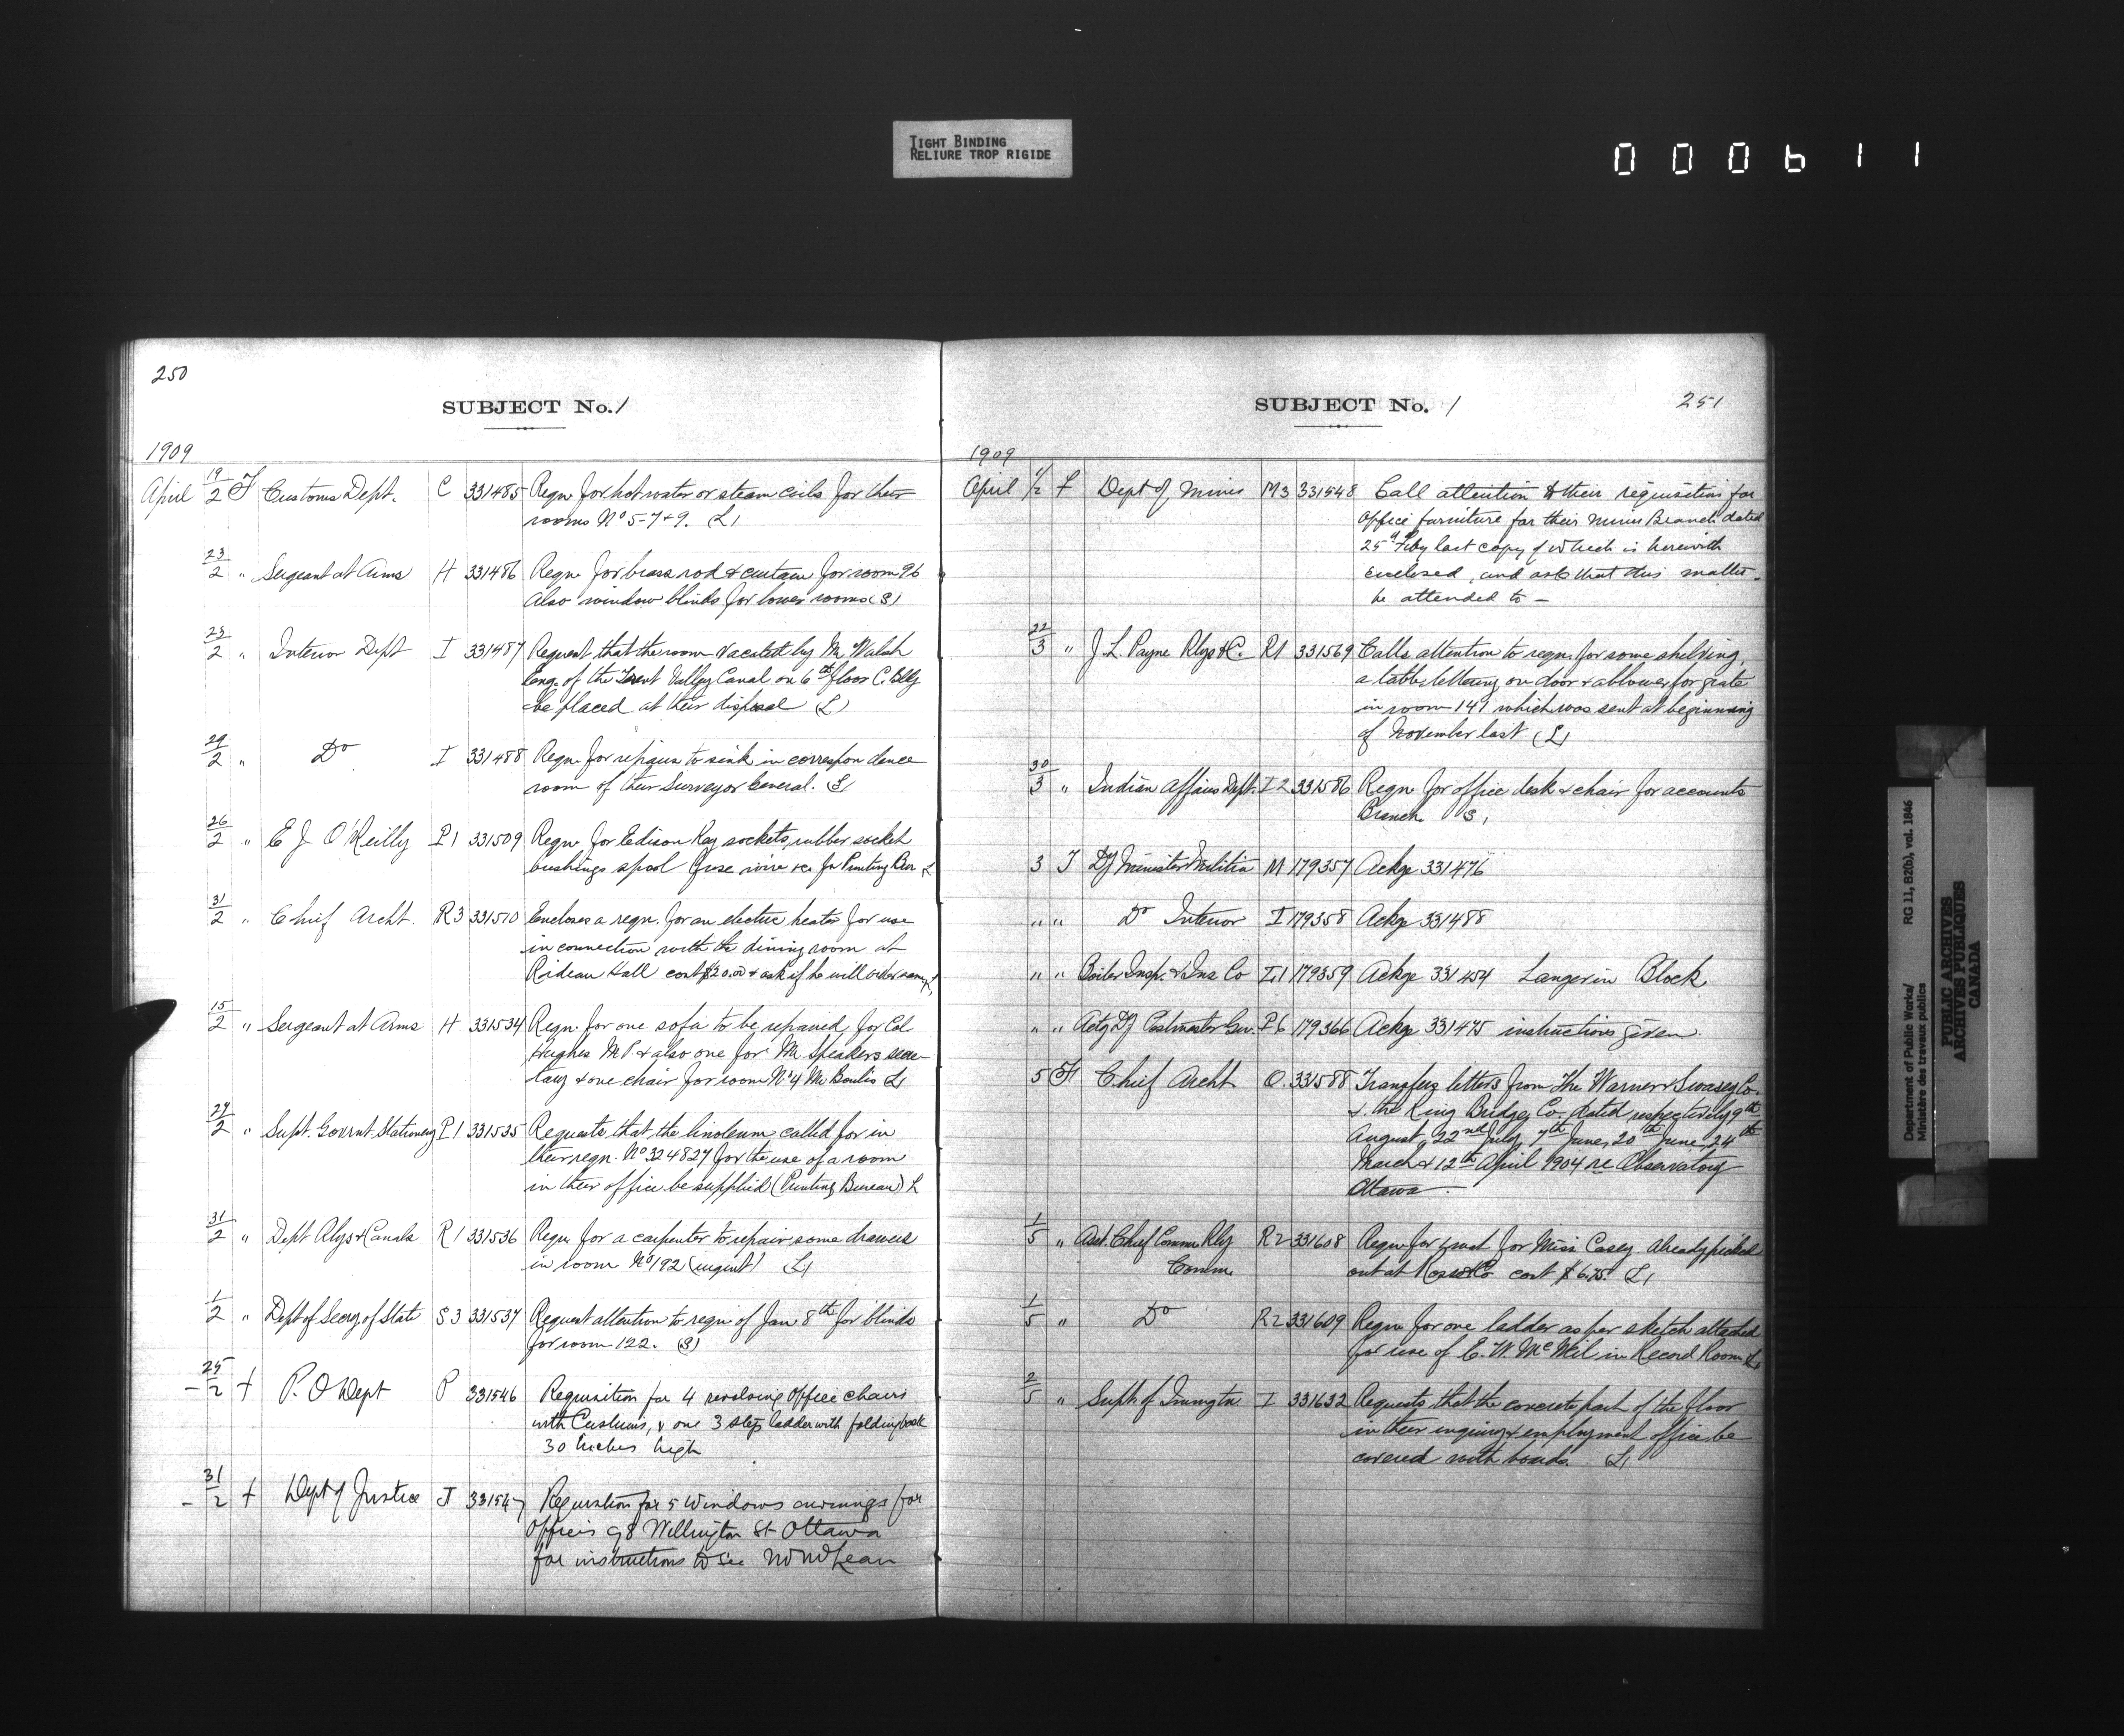 TIGHT BINDING
RELIURE TROP RIGIDE
000611
250
SUBJECT No. 1
1909
April 19/2 F Customs Dept. C 331485 Reqn for hot water or steam coils for their
rooms No 5-7+9. (L)
23/2 " Sergeant at Arms H 331486 Reqn for brass rod & curtain for room 96
Also window blinds for lower rooms (S)
23/2 " Interior Dept I 331487 Request that the room vacated by Mr Walsh
Eng. of the Trent Valley Canal on 6th floor C. Bldg
be placed at their disposal (L)
29/2 " Do I 331488 Reqn for repairs to sink in correspondence
room of their Surveyor General. (S)
26/2 " E J O'Reilly P1 331509 Reqn for Edison Key sockets, rubber socket
bushings spool fuse wire &c for Printing Bur L
31/2 " Chief Archt. R3 331510 Encloses a reqn. for an electric heater for use
in connection with the dining room at
Rideau Hall cost $20.00 & ask if he will order same L
15/2 " Sergeant at Arms H 331534 Reqn for one sofa to be repaired, for Col
Hughes M.P. & also one for Mr. Speakers secre-
tary & one chair for room No 4 Mr L
27/2 " Supt. Govrnt. Stationery P1 331535 Requests that the linoleum called for in
their reqn. No 324827 for the use of a room
in their office be supplied (Printing Bureau) L
31/2 " Dept Rlys & Canals R1 331536 Reqn for a carpenter to repair some drawers
in room No 192 (urgent) L
1/2 " Dept of Secy. of State S3 331537 Request attention to reqn of Jan 8th for blinds
for room 122. (S)
25/2 + P. O Dept P 331546 Requisition for 4 revolving office chairs
with Cushions, & one 3 step ladder with folding back
30 inches high
31/2 + Dept of Justice J 331547 Requisition for 5 Windows awnings for
Offices 98 Wellington St Ottawa
for instructions to see
SUBJECT No. 1
251
1909
April 1/2 F Dept of Mines M3 331548 Call attention to their requisition for
office furniture for their Mines Branch dated
25th Feby last copy of which is herewith
enclosed, and ask that this matter
be attended to -
22/3 " J L. Payne Rlys & C. R1 331569 Calls attention to reqn. for some shelving,
a table, lettering on door & a blower for grate
in room 141 which was sent at beginning
of November last (L)
30/3 " Indian Affairs Dept. I2 331586 Reqn for office desk & chair for accounts
Branch (S)
3 T Dy Minister Militia M 179357 Ackge 331476
" " Do Interior I 179358 Ackge 331488
" " Boiler Insp. & Ins Co I1 179359 Ackge 331454 Langevin Block
" " Actg Dy Postmaster Gen. P6 179366 Ackge 331475 instructions given.
5 F Chief Archt O. 331588 Transfers letters from The Warner & Swasey Co.
& the King Bridge Co. dated respectively 9th
August, 22nd July, 7th June, 20th June, 24th
March & 12th April 1904 re Observatory
Ottawa.
1/5 " Asst. Chief Commr Rly R2 331608 Reqn for for Miss Casey. Already picked
Comm. out at Ross & Co cost $6.75. L
1/5 " Do R2 331609 Reqn for one ladder as per sketch attached
for use of C. W. McNeil in Record Room L
2/5 " Supt. of Immigtn I 331632 Requests that the concrete part of the floor
in their inquiry & employment office be
covered with boards. L
Department of Public Works/ RG 11, B2(b), vol. 1846
Ministère des travaux publics
PUBLIC ARCHIVES
ARCHIVES PUBLIQUES
CANADA